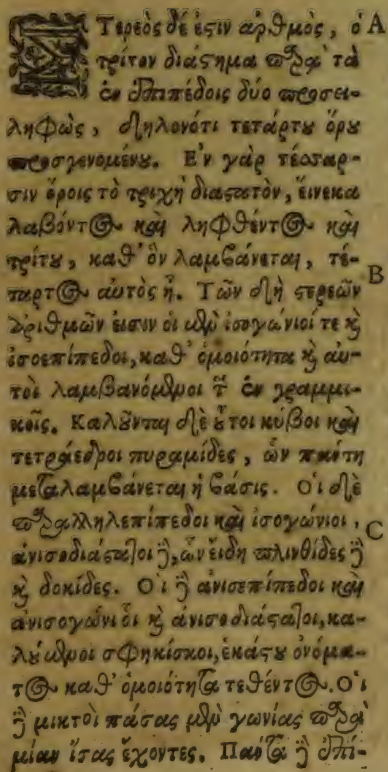 Στερεὸς δέ ἐστιν ἀριθμὸς, ὁ A
τρίτον διάστημα παρὰ τὰ
ἐν ἐπιπέδοις δύο προσει-
ληφὼς, δηλονότι τετάρτου ὅρου
προσγενομένου. Ἐν γὰρ τέσσαρ-
σιν ὅροις τὸ τριχῆ διαστατὸν, εἵνεκα
λαβόντος καὶ ληφθέντος καὶ
τρίτου, καθ' ὃν λαμβάνεται, τέ-
ταρτος αὐτὸς ᾖ. Τῶν δὴ στερεῶν B
ἀριθμῶν εἰσιν οἱ μὲν ἰσογώνιοί τε καὶ
ἰσοεπίπεδοι, καθ' ὁμοιότητα καὶ αὐ-
τοὶ λαμβανόμενοι τῶν ἐν γραμμι-
κοῖς. Καλοῦνται δὲ οὗτοι κύβοι καὶ
τετράεδροι πυραμίδες, ὧν πάντη
μεταλαμβάνεται ἡ βάσις. Οἱ δὲ
παραλληλεπίπεδοι καὶ ἰσογώνιοι, C
ἀνισοδιάστατοι δὲ, ὧν εἴδη πλινθίδες τε
καὶ δοκίδες. Οἱ δὲ ἀνισεπίπεδοι καὶ
ἀνισογώνιοι καὶ ἀνισοδιάστατοι, κα-
λούμενοι σφηκίσκοι, ἑκάστου ὀνόμα-
τος καθ' ὁμοιότητα τεθέντος. Οἱ
δὲ μικτοὶ πάσας μὲν γωνίας παρὰ
μίαν ἴσας ἔχοντες. Πάντα δὲ ἐπί-